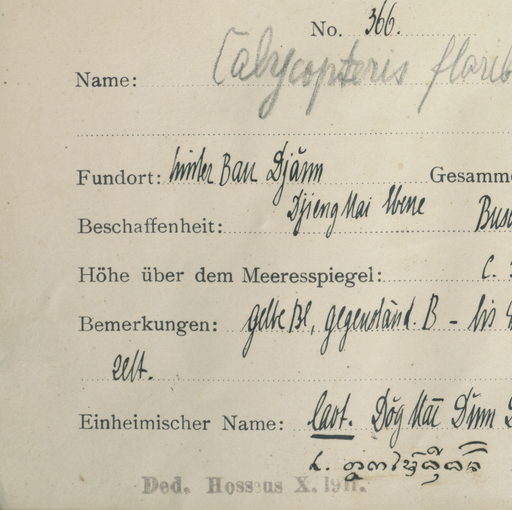 No. 366.
Name: Calycopteris florib
Fundort: hinter Ban Djänn Gesamme
Djieng Mai Ebene
Beschaffenheit: Busc
Höhe über dem Meeresspiegel: c.
Bemerkungen: gelbe Bl, gegenständ. B – bis
zelt.
Einheimischer Name: laot. Dŏg Mai Dĭnn
Ded. Hosseus X. 1911.